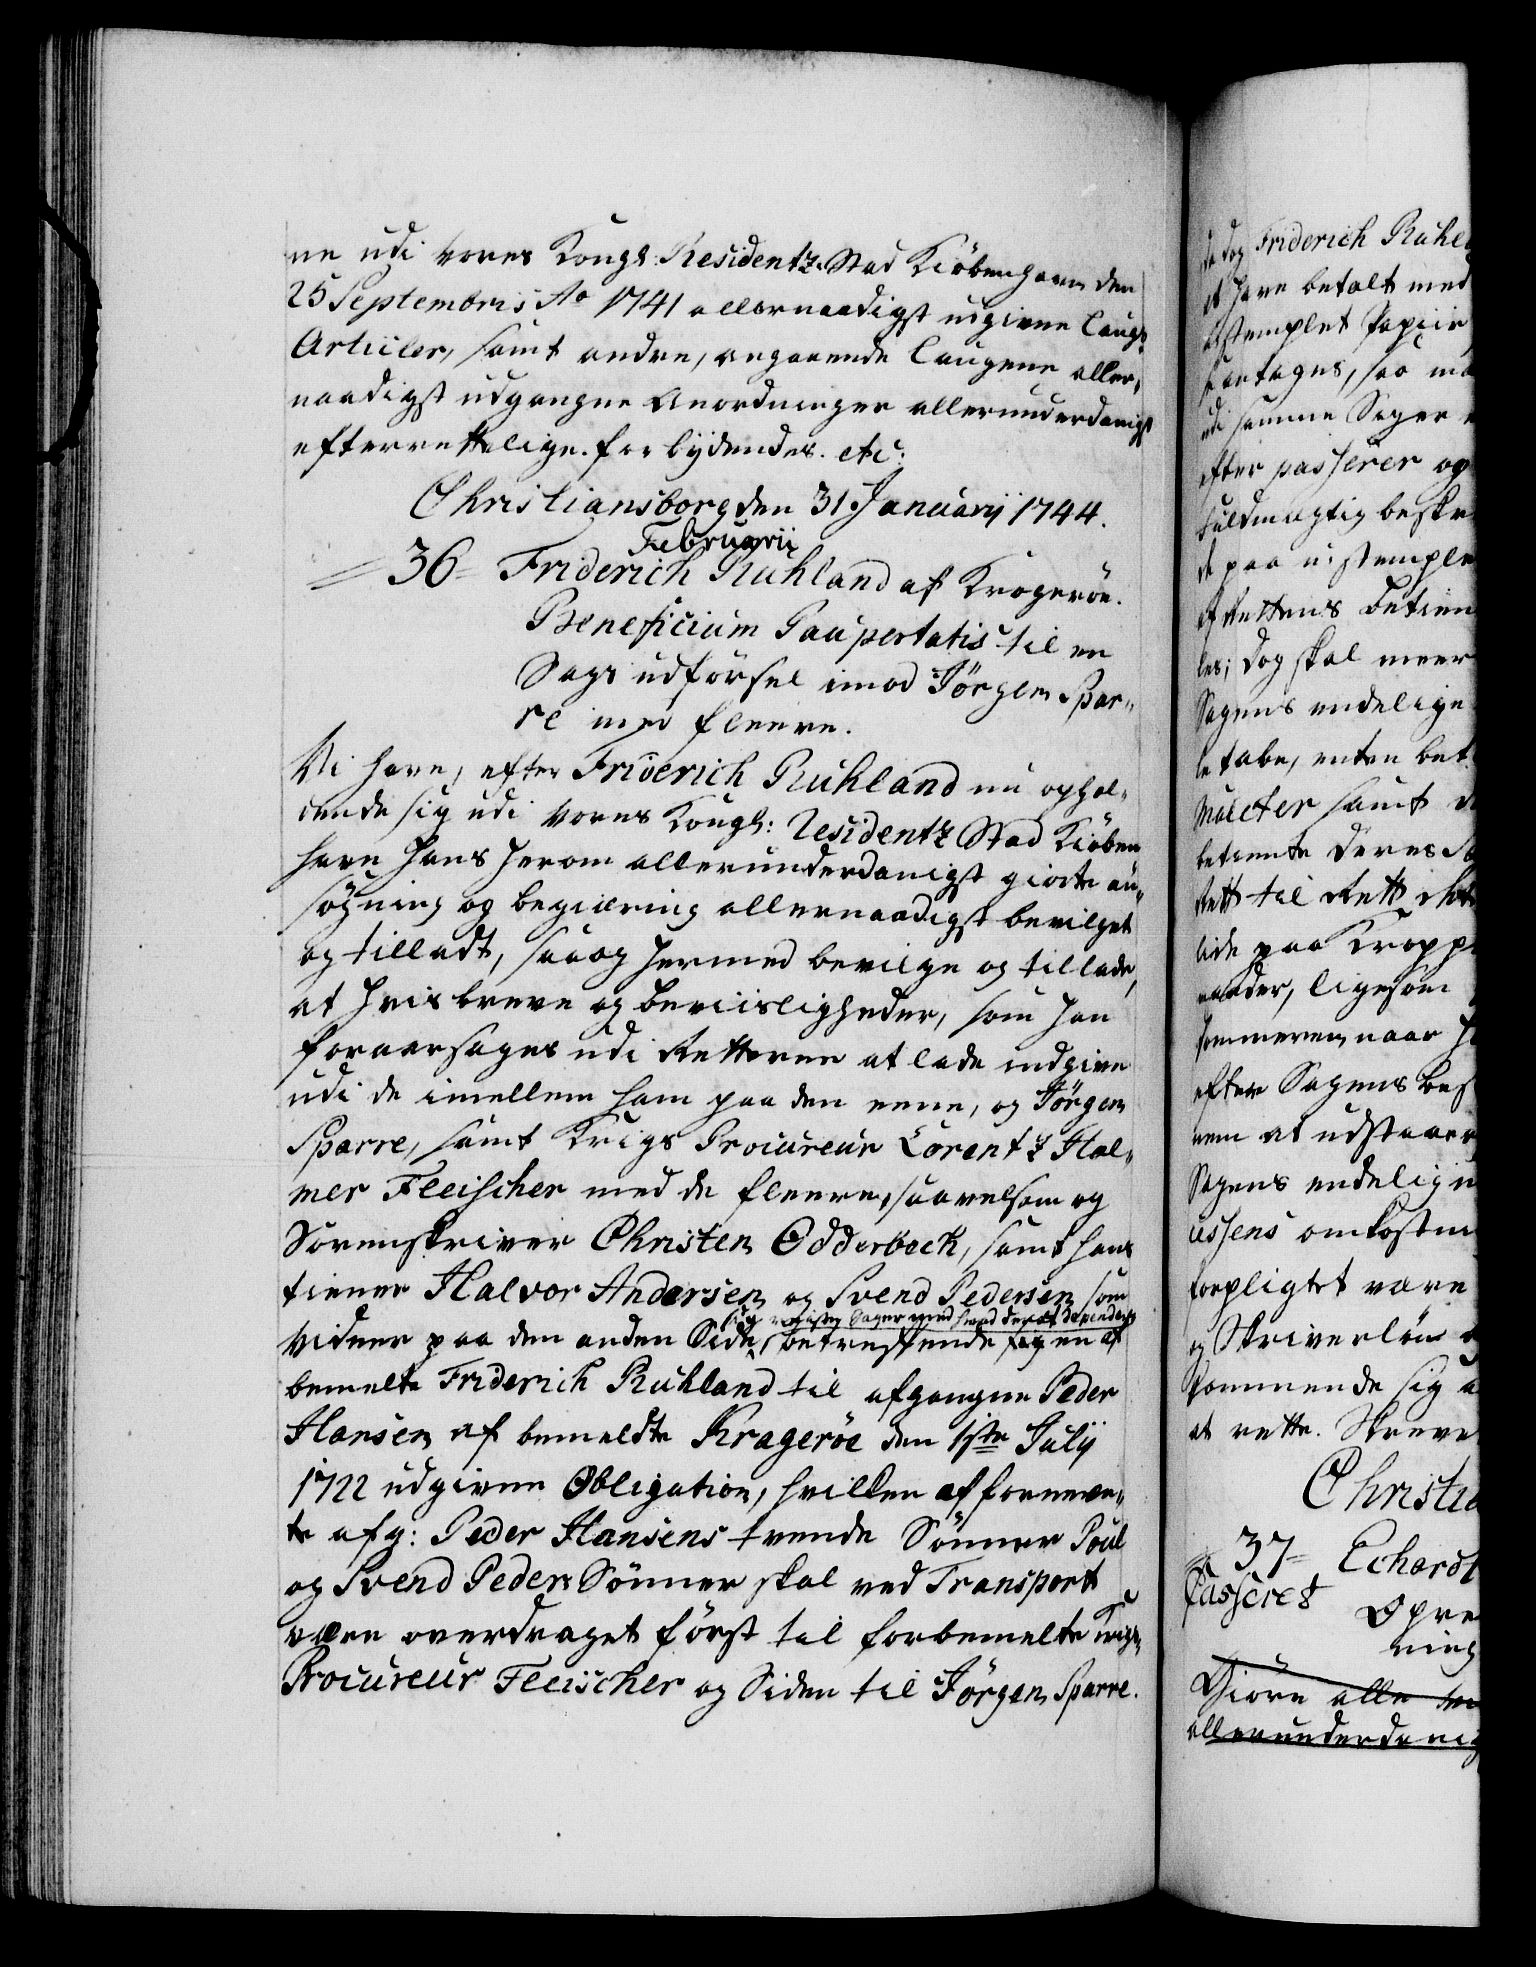 ne udi vores Kongl: Residentz Stad Kiöbenhavn den
25 Septembris Ao 1741 allernaadigst udgivne Laugs
Articler, samt andre, angaaende Laugene aller,
naadigst udgangne Anordninger allerunderdanigst
efterrettelige. forbÿdendes. etc:
Christiansborg den 31 Januarij 1744.
Februarii
36 Friderich Ruhland af Kragerøe.
Beneficium Paupertatis til en
Sags udførsel imod Jörgen Spar„
re med fleere.
Vi have, efter Friderich Ruhland nu ophol„
dende sig udi vores Kongl: Residentz Stad Kiöben
havn hans herom allerunderdanigst giorte an„
søgning og begiering allernaadigst bevilget
og tilladt, saa og hermed bevilge og tillade,
at hvis breve og beviisligheder, som han
foraarsages udi Retterne at lade indgive
udi de imellem ham paa den eene, og Jörgen
Sparre, samt Krigs Procureur Lorentz Hol„
mer Fleischer med de fleere, saavelsom og
Sorenskriver Christen Odderbech, samt hans
tiener Halvor Andersen og Svend Pedersen som
sig reiste Sager med hvad deraf dependerer
Vidner paa den anden Side, betreffende en af
bemelte Friderich Ruhland til afgangne Peder
Hansen af bemeldte Kragerøe den 1ste Julÿ
1722 udgivne Obligation, hvilken af fornevn„
te afg: Peder Hansens tvende Sönner Poul
og Svend Peders Sönner skal ved Transport
være overdraget först til forbemelte Krigs
Procureur Fleischer og Siden til Jörgen Sparre.
de dog Friderich Ruhl
at have betalt med
ustemplet Papiir
udi samme Sager
efter passerer og
fuldmægtig beskr
de paa ustemple
af Rettens betien
les; dog skal meer
Sagens endelige
le tabe, enten bet
mulcter samt
betiente deres Sa
Rett til Rett
lide paa Kropp
naader, ligesom
efter Sagens bes
nem at udstaae
Sagens endelig
ussens omkostn
forpligtet være
og Skriverløn
kommende sig
at rette. Skreve
Christia
37 Echardt
Passeret
Opre
ning
Giøre alle
allerunderdanig